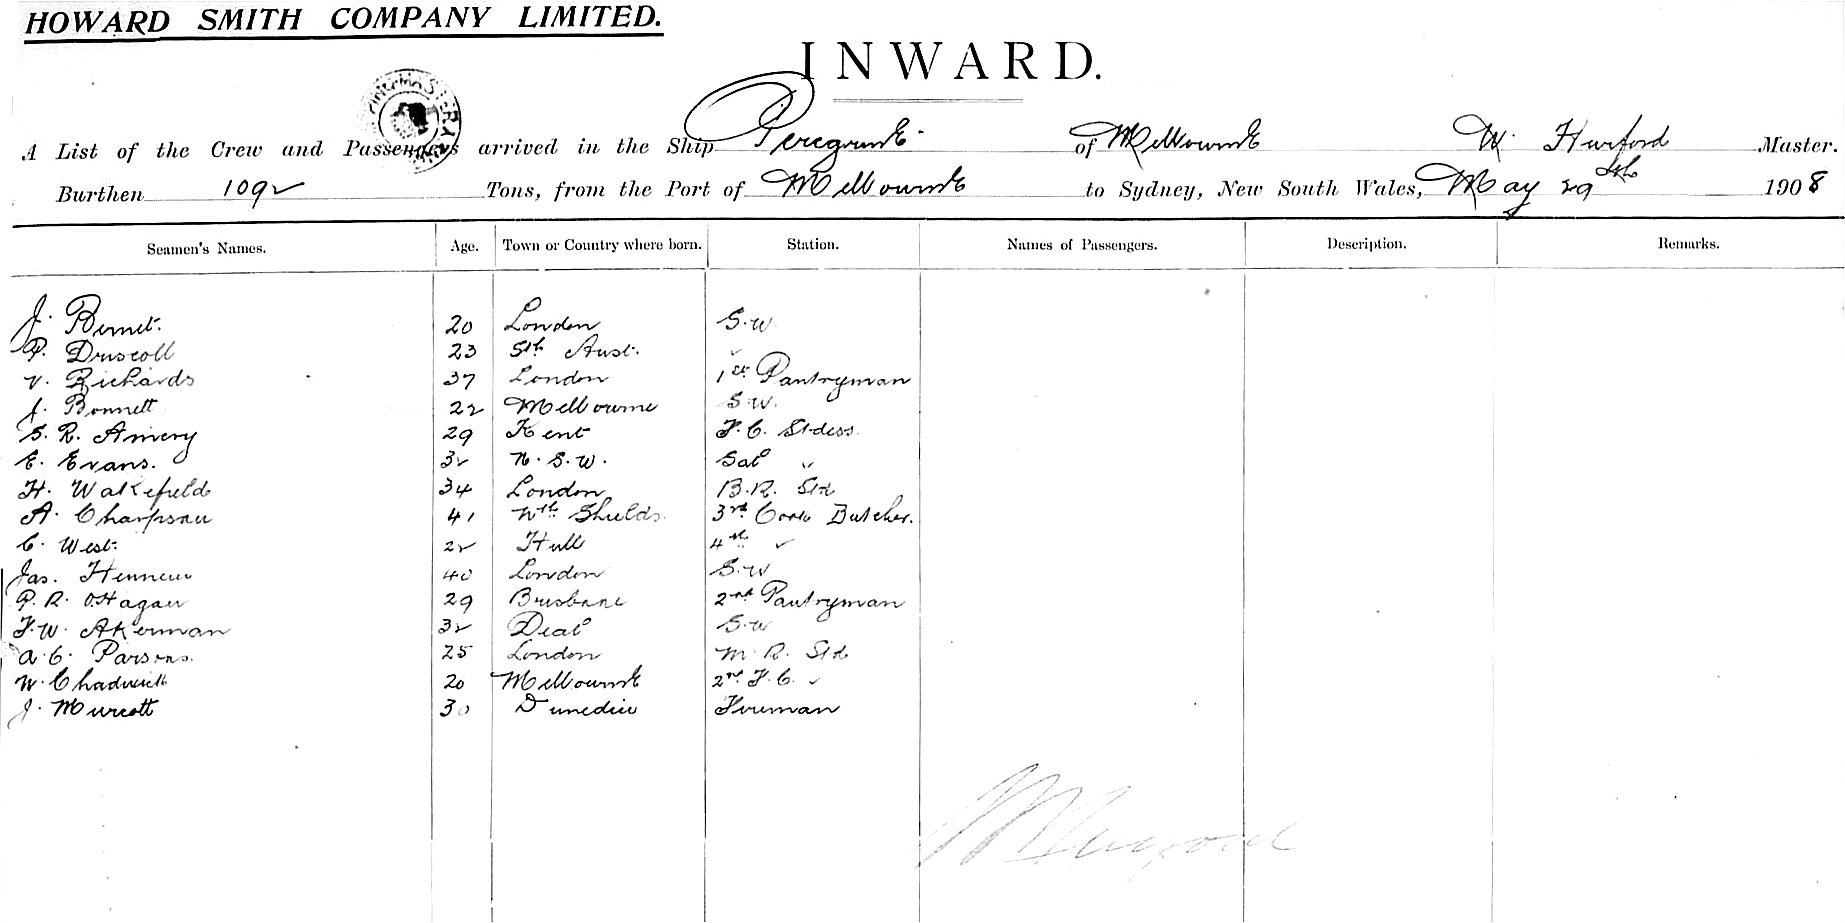 HOWARD SMITH COMPANY LIMITED.
INWARD.
A List of the Crew and Passengers arrived in the Ship Peregrine of Melbourne W. Hurford Master.
Burthen 1092 Tons, from the Port of Melbourne to Sydney, New South Wales, May 29th 1908
Seamen's Names. Age. Town or Country where born. Station. Names of Passengers. Description. Remarks.
J. 20 London S.W.
P. Driscoll 23 Sth Aust. "
V. Richards 37 London 1st Pantryman
J. Bonnett 22 Melbourne S.W.
S. R. Amery 29 Kent F.C. Stdess.
E. Evans. 32 N.S.W. Sal "
H. Wakefield 34 London B.R. Std
A. 41 Nth Shields. 3rd Cook Butcher.
C. West. 22 Hull 4th "
Jas. 40 London S.W
P. R. O'Hagan 29 Brisbane 2nd Pantryman
F.W. Akerman 32 Deal S.W
A.C. Parsons. 25 London M.R. Std
W. Chadwick 20 Melbourne 2nd F.C. "
J. Murcott 30 Dunedin Fireman
W Hurford